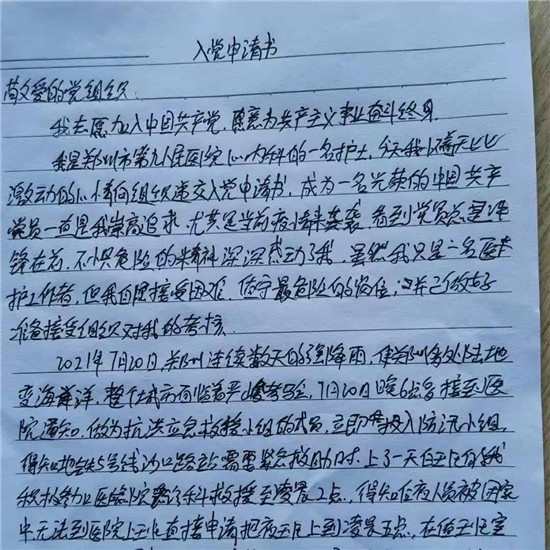 入党申请书
敬爱的党组织:
我志愿加入中国共产党,愿意为共产主义事业奋斗终身.
我是郑州市第九人民医院心内科的一名护士,今天我以无比
激动的心情向组织递交入党申请书,成为一名光荣的中国共产
党员一直是我崇高追求,尤其是当前疫情来袭,看到党员总是冲
锋在前,不惧危险的精神深深感动了我,虽然我只是一名医
护工作者,但我自愿接受困难,坚守最危险的岗位,并已做好
准备接受组织对我的考核.
2021年7月20日,郑州连续数天的强降雨,使郑州多处陆地
变海洋,整个城市面临着严峻考验,7月20日晚6点多接到医
院通知,做为抗洪应急救援小组的成员,立即投入防汛小组,
得知地铁5号线沙口路站需要紧急救助时,上了一天白班的我
积极参加医院救援至凌晨2点,得知值夜人员被困家
中无法到医院上班直接申请把夜班上到凌晨五点,在值班室